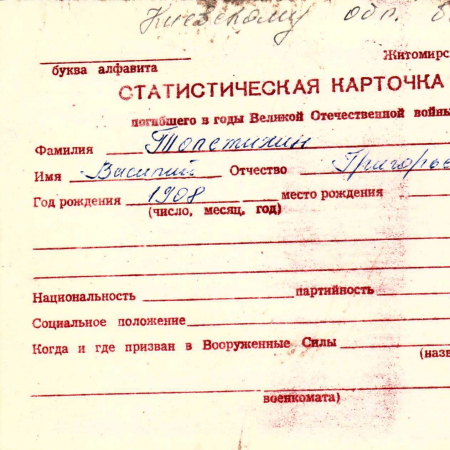 Киевскому обл. в
буква алфавита
Житомирс
СТАТИСТИЧЕСКАЯ КАРТОЧКА
погибшего в годы Великой Отечественной войны
Фамилия Топетихин
Имя Василий Отчество Григорье
Год рождения 1908 место рождения
(число, месяц, год)
Национальность партийность
Социальное положение
Когда и где призван в Вооруженные Силы
(назв
военкомата)